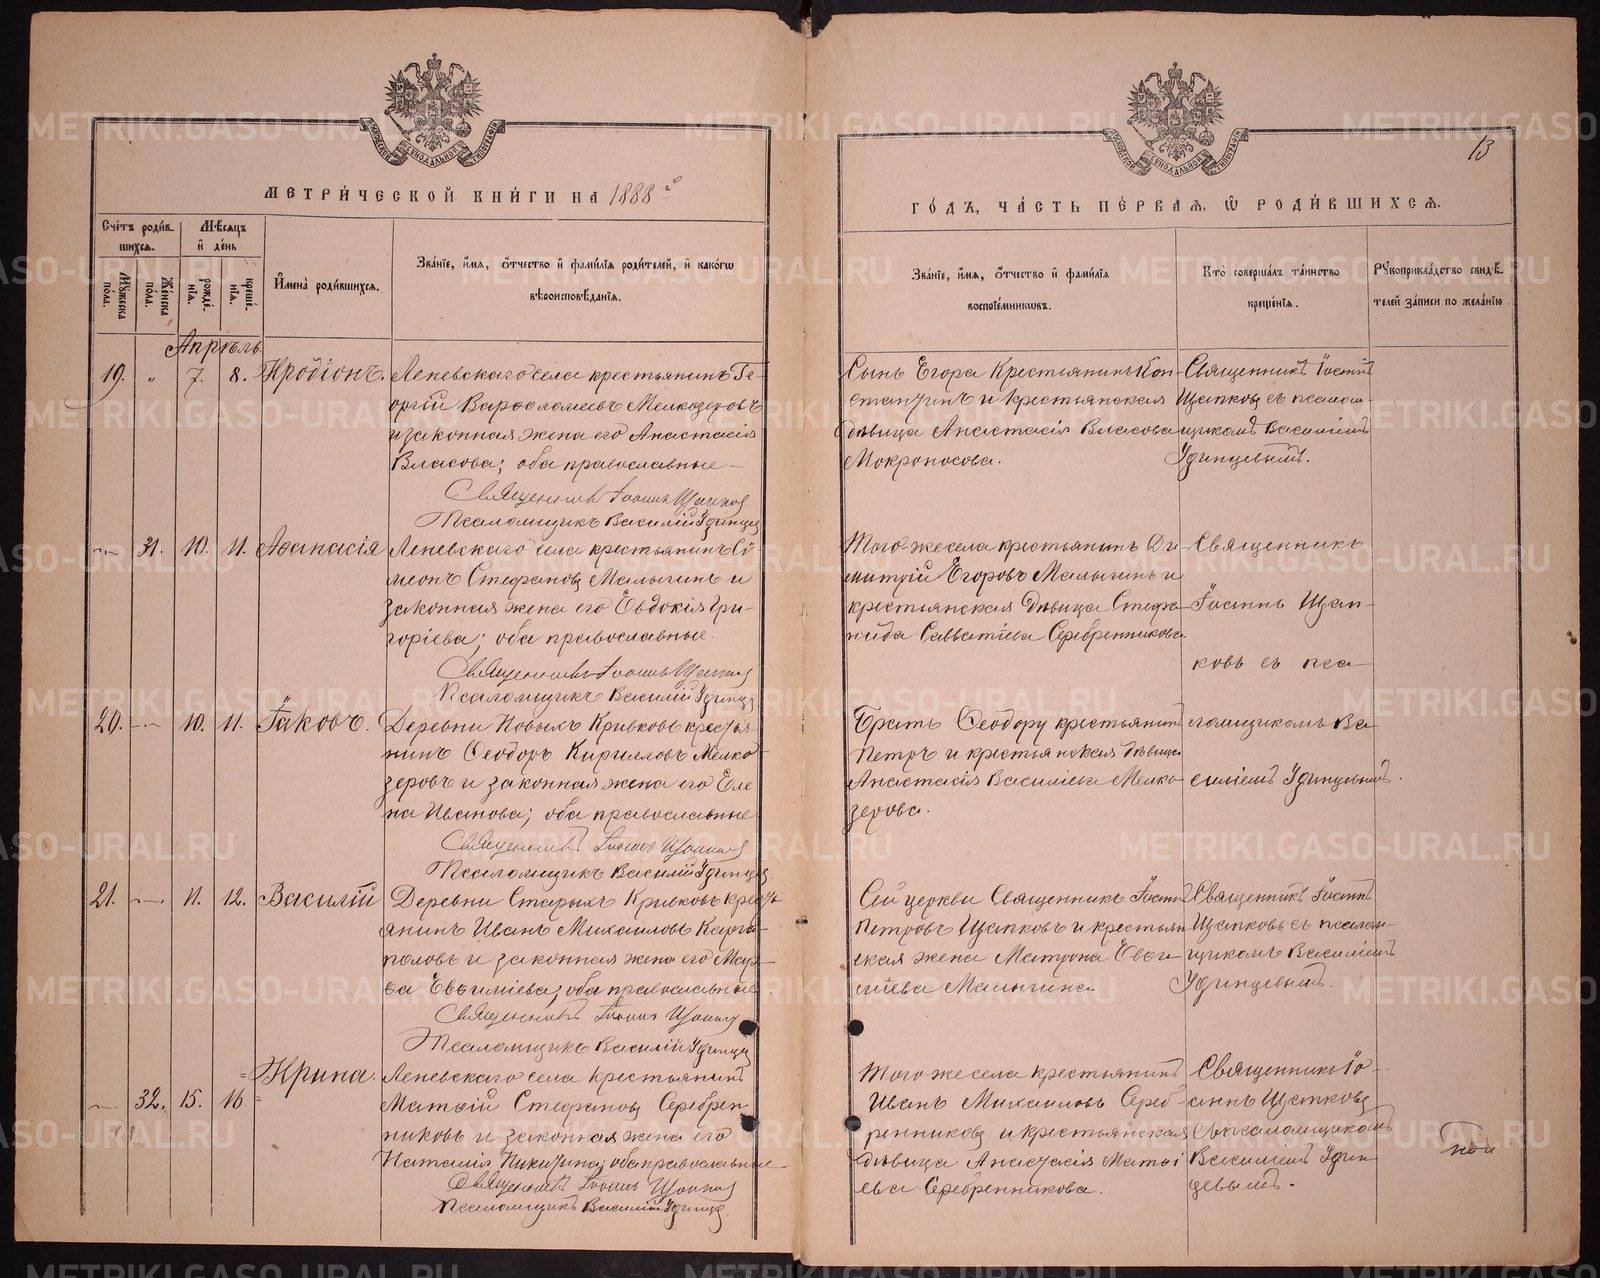 МЕТРИ́ЧЕСКОЙ КНИ́ГИ НА 1888 й
Сче́тъ роди́в-
шихсѧ.
Мѣ́сѧцъ
и҆ де́нь
Мꙋ́жеска
по́ла.
Же́нска
по́ла.
рожде́-
нїѧ.
креще́-
нїѧ.
И҆мена̀ роди́вшихсѧ.
Зва́нїе, и҆́мѧ, ѻ҆́тчество и҆ фами́лїѧ роди́телей, и҆ како́гѡ
вѣроисповѣ́данїѧ.
Апрѣль
19. " 7. 8. Иродіонъ.
Леневскаго села крестьянинъ Ге-
оргій Варѳоломеевъ Мелкозеровъ
и законная жена его Анастасія
Власова; оба православные
Священникъ Іоаннъ Щапков
Псаломщикъ Василій Удинцев
31. 10. 11. Аѳанасія
Леневскаго села крестьянинъ Си-
меонъ Стефановъ Малыгинъ и
законная жена его Евдокія Гри-
горіева; оба православные.
Священникъ Іоаннъ Щапков
Псаломщикъ Василій Удинцев
20. 10. 11. Іаковъ.
Деревни Новыхъ Кривковъ кресть-
нинъ Ѳеодоръ Кирилловъ Мелко-
зеровъ и законная жена его Еле-
на Иванова; оба православные
Священникъ Іоаннъ Щапков
Псаломщикъ Василій Удинцев
21. 11. 12. Василій
Деревни Старыхъ Кривковъ кресть-
янинъ Иванъ Михаиловъ Карга-
половъ и законная жена его Мар-
ѳа Евѳиміева; оба православные
Священникъ Іоаннъ Щапков
Псаломщикъ Василій Удинцев
32. 15. 16 Ирина.
Леневскаго села крестьянинъ
Матѳій Стефановъ Серебрен-
никовъ и законная жена его
Наталія Никитина; оба православные
Священникъ Іоаннъ Щапков
Псаломщикъ Василій Удинцев
13
ГО́ДЪ, ЧА́СТЬ ПЕ́РВАѦ, Ѡ҆ РОДИ́ВШИХСѦ.
Зва́нїе, и҆́мѧ, ѻ҆́тчество и҆ фами́лїѧ
воспрїе́мникѡвъ.
Кто̀ соверша́лъ та́инство
креще́нїѧ.
Рꙋкоприкла́дство свидѣ́-
телей за́писи по жела́нїю.
Сынъ Егора Крестьянинъ Кон-
стантинъ и крестьянская
дѣвица Анастасія Власова
Мокроносова.
Священникъ Іоаннъ
Щапковъ съ псалом-
щикомъ Василіемъ
Удинцевымъ.
Того-же села крестьянинъ Ди-
митрій Егоровъ Малыгинъ и
крестьянская дѣвица Стефа-
нида Савватіева Серебренникова
Священникъ
Іоаннъ Щап-
ковъ съ пса-
ломщикомъ Ва-
силіемъ Удинцевымъ.
Братъ Ѳеодору крестьянинъ
Петръ и крестьянская дѣвица
Анастасія Василіева Мелко-
зерова.
Сей церкви Священникъ Іоаннъ
Петровъ Щапковъ и крестьян-
ская жена Матрона Евѳи-
міева Малыгина
Священникъ Іоаннъ
Щапковъ съ псалом-
щикомъ Василіемъ
Удинцевымъ.
Того-же села крестьянинъ
Иванъ Михаиловъ Сереб-
ренниковъ и крестьянская
дѣвица Анастасія Матѳі-
ева Серебренникова.
Священникъ Іо-
аннъ Щапковъ
съ псаломщикомъ
Василіемъ Удин-
цевымъ.